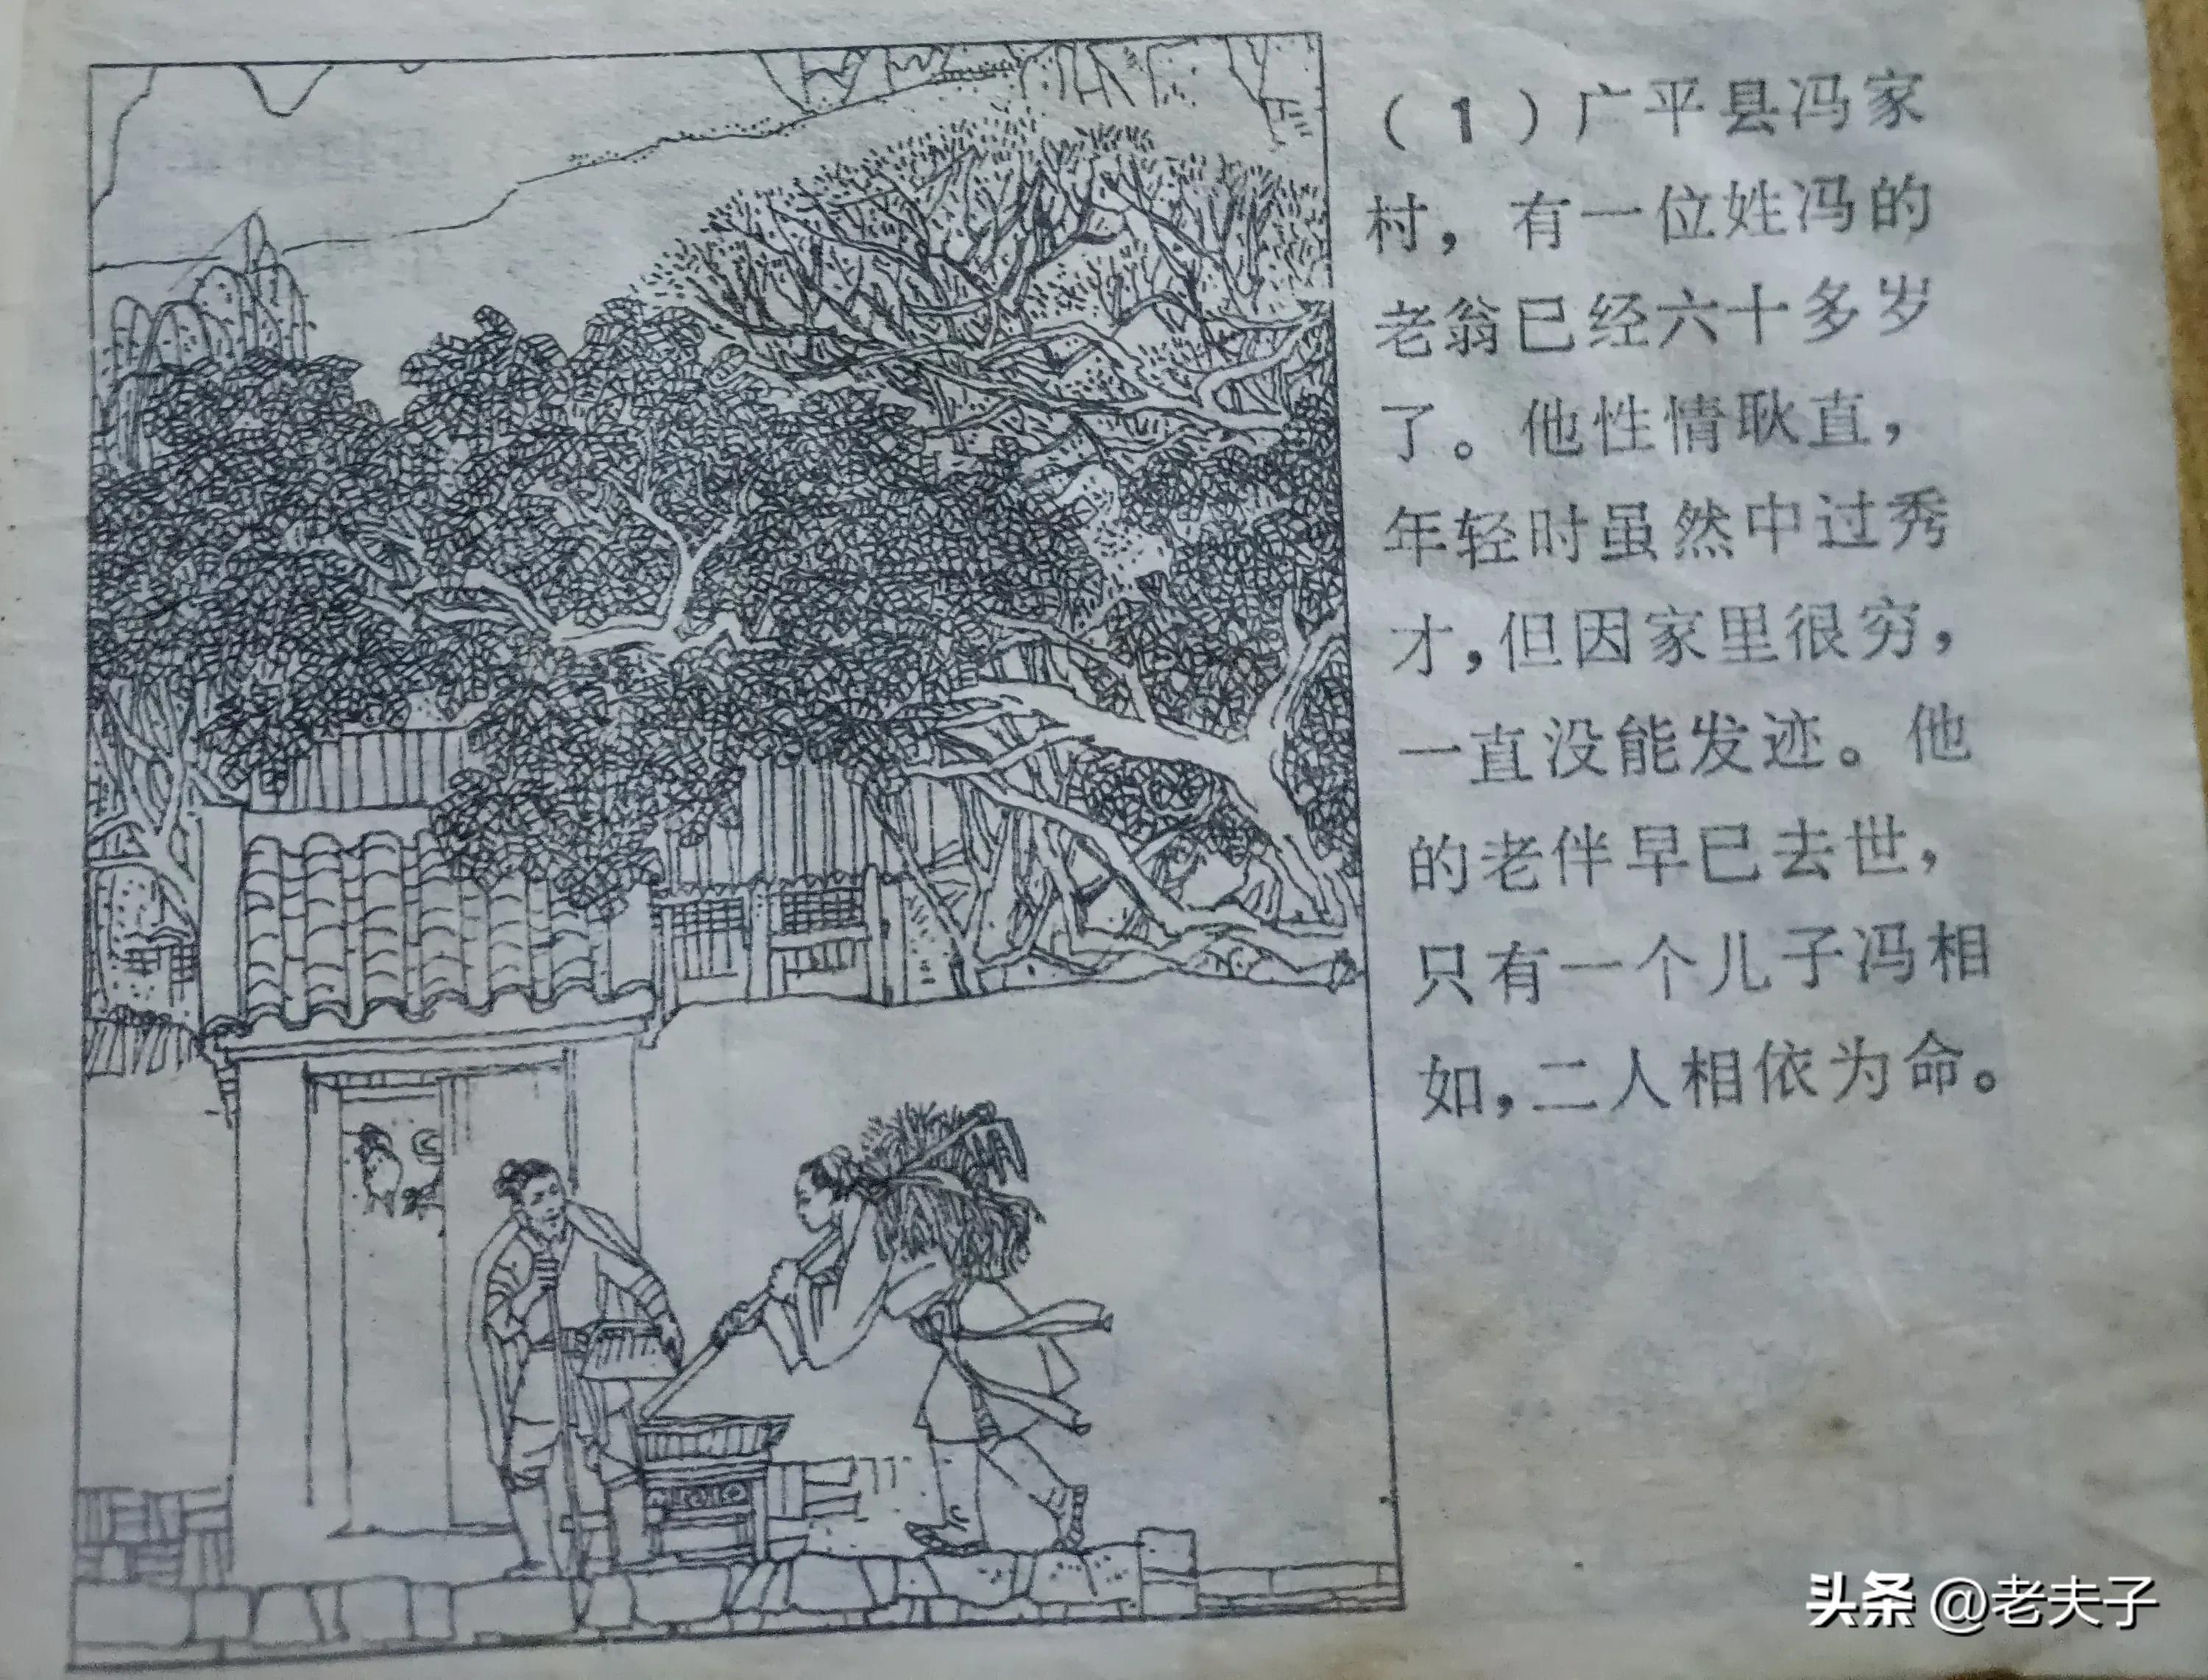 （1）广平县冯家
村，有一位姓冯的
老翁已经六十多岁
了。他性情耿直，
年轻时虽然中过秀
才，但因家里很穷，
一直没能发迹。他
的老伴早已去世，
只有一个儿子冯相
如，二人相依为命。
头条 @老夫子